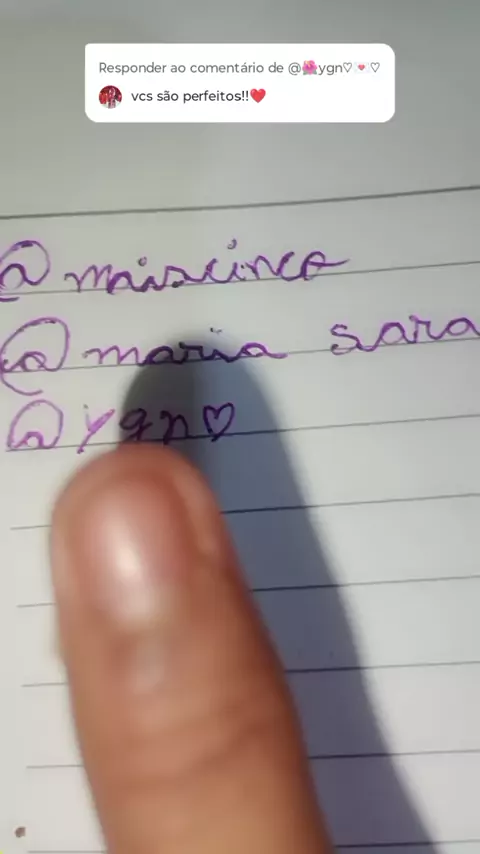 Responder ao comentário de @🌺ygn♡💌♡
vcs são perfeitos!!❤️
@
@maria sara
@ygn♡